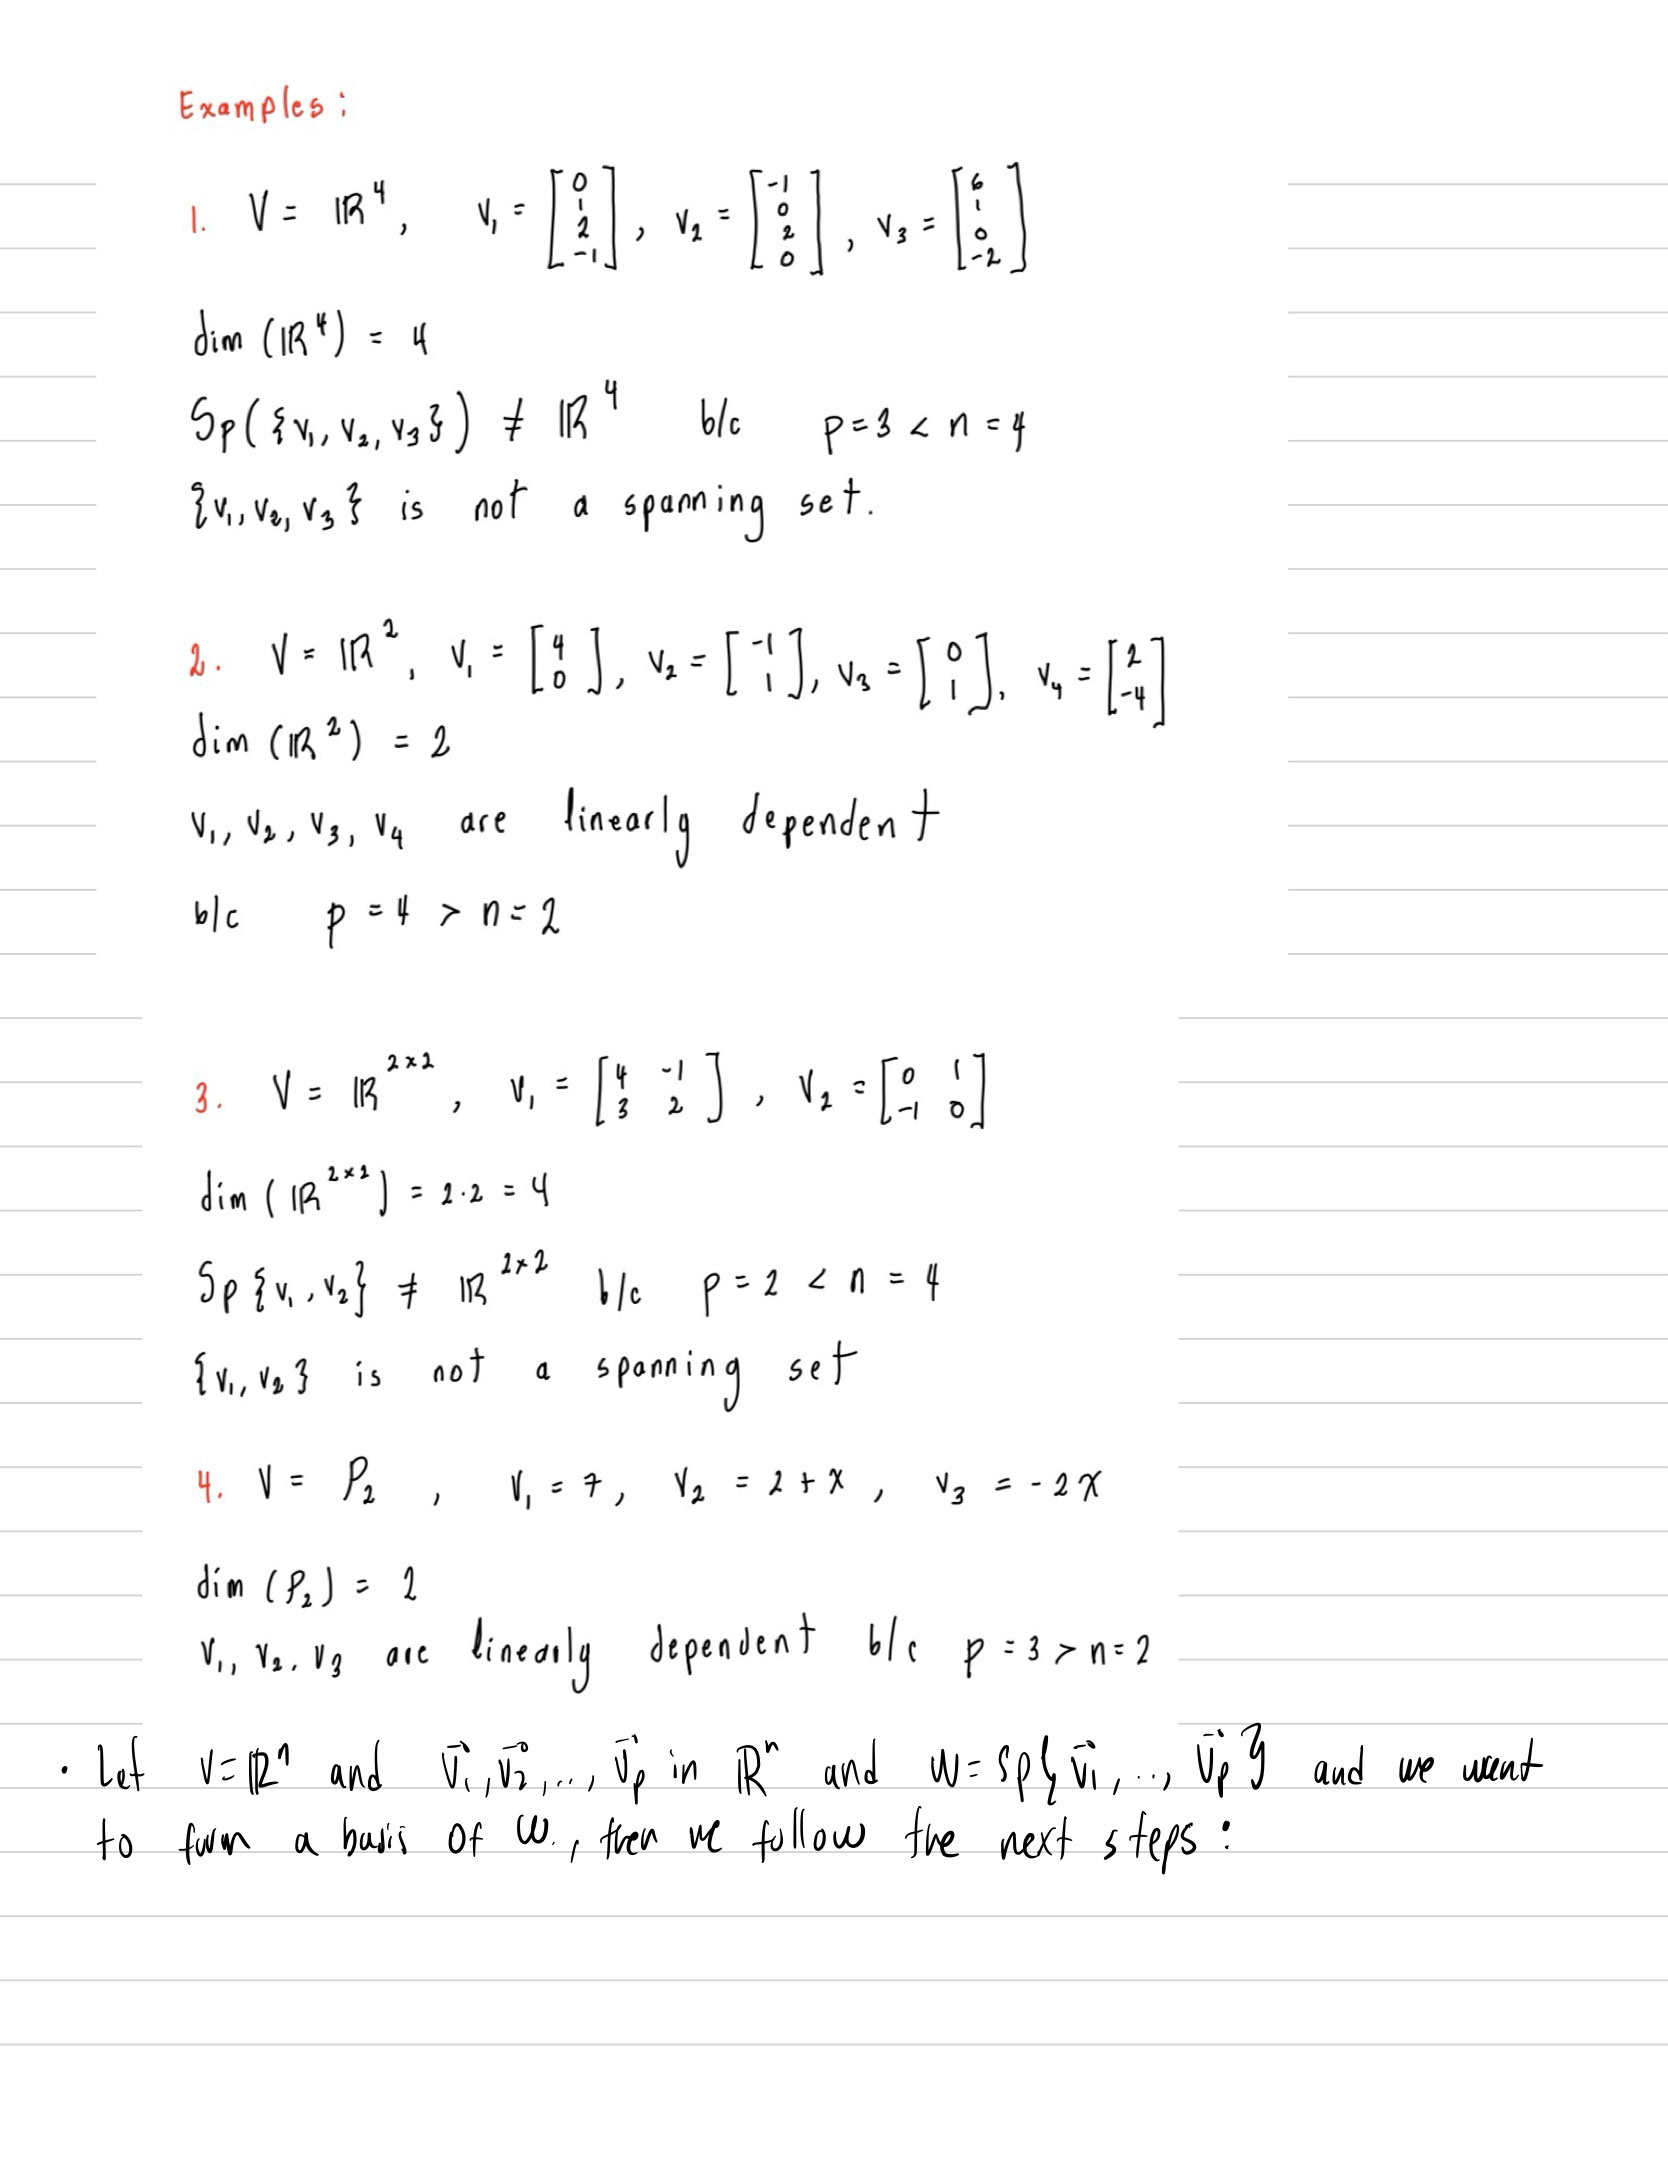 Examples:
1. V = ℝ⁴, v₁ = [0 1 2 -1], v₂ = [-1 0 2 0], v₃ = [6 1 0 -2]
dim (ℝ⁴) = 4
Sp({v₁, v₂, v₃}) ≠ ℝ⁴ b/c p=3 < n = 4
{v₁, v₂, v₃} is not a spanning set.
2. V = ℝ², v₁ = [4 0], v₂ = [-1 1], v₃ = [0 1], v₄ = [2 -4]
dim (ℝ²) = 2
v₁, v₂, v₃, v₄ are linearly dependent
b/c p = 4 > n = 2
3. V = ℝ²ˣ², v₁ = [4 -1 3 2], v₂ = [0 1 -1 0]
dim (ℝ²ˣ²) = 2·2 = 4
Sp {v₁, v₂} ≠ ℝ²ˣ² b/c p = 2 < n = 4
{v₁, v₂} is not a spanning set
4. V = P₂, v₁ = 7, v₂ = 2 + x, v₃ = -2x
dim (P₂) = 2
v₁, v₂, v₃ are linearly dependent b/c p = 3 > n = 2
· Let V=ℝⁿ and v⃗₁, v⃗₂, ..., v⃗p in ℝⁿ and W = Sp{v⃗₁, .., v⃗p} and we want
to form a basis of W., then we follow the next steps: